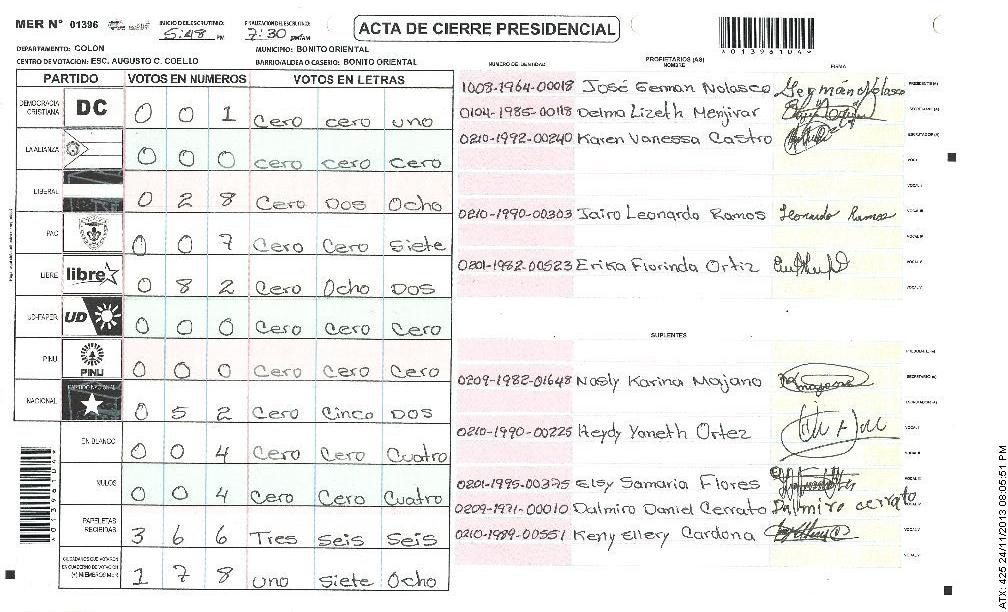 MER N° 01396
INICIO DEL ESCRUTINIO: 5:48 PM
FINALIZACION DEL ESCRUTINIO: 7:30
ACTA DE CIERRE PRESIDENCIAL
A01396104
DEPARTAMENTO: COLON
MUNICIPIO: BONITO ORIENTAL
CENTRO DE VOTACION: ESC. AUGUSTO C. COELLO
BARRIO/ALDEA O CASERIO: BONITO ORIENTAL
PARTIDO VOTOS EN NUMEROS VOTOS EN LETRAS
DEMOCRACIA CRISTIANA DC 0 0 1 Cero cero uno
LA ALIANZA 0 0 0 cero cero cero
LIBERAL 0 2 8 Cero Dos Ocho
PAC 0 0 7 Cero Cero Siete
LIBRE libre 0 8 2 Cero Ocho Dos
UD-FAPER UD 0 0 0 Cero Cero Cero
PINU PINU 0 0 0 Cero Cero Cero
NACIONAL PARTIDO NACIONAL 0 5 2 Cero Cinco Dos
EN BLANCO 0 0 4 Cero Cero Cuatro
NULOS 0 0 4 Cero Cero Cuatro
PAPELETAS RECIBIDAS 3 6 6 Tres Seis Seis
CIUDADANOS QUE VOTARON EN CUADERNO DE VOTACION (+) MIEMBROS MER 1 7 8 uno Siete Ocho
A01396104
NUMERO DE IDENTIDAD
PROPIETARIOS (AS)
NOMBRE
FIRMA
1008-1964-00018 José German Nolasco Germán Nolasco PRESIDENTE (A)
0104-1985-00118 Delma Lizeth Menjivar SECRETARIO (A)
0210-1992-00240 Karen Vanessa Castro ESCRUTADOR (A)
VOCAL I
VOCAL II
0210-1990-00303 Jairo Leonardo Ramos Leonardo Ramos VOCAL III
VOCAL IV
0201-1982-00523 Erika Florinda Ortiz VOCAL V
SUPLENTES
PRESIDENTE (A)
0209-1982-01648 Nasly Karina Majano SECRETARIO (A)
ESCRUTADOR (A)
0210-1990-00225 Heydy Yaneth Ortez VOCAL I
VOCAL II
0201-1995-00375 Elsy Samaria Flores VOCAL III
0209-1971-00010 Dalmiro Daniel Cerrato Dalmiro cerrato
0210-1989-00551 Keny Ellery Cardona VOCAL V
ATX: 425 24/11/2013 08:05:51 PM